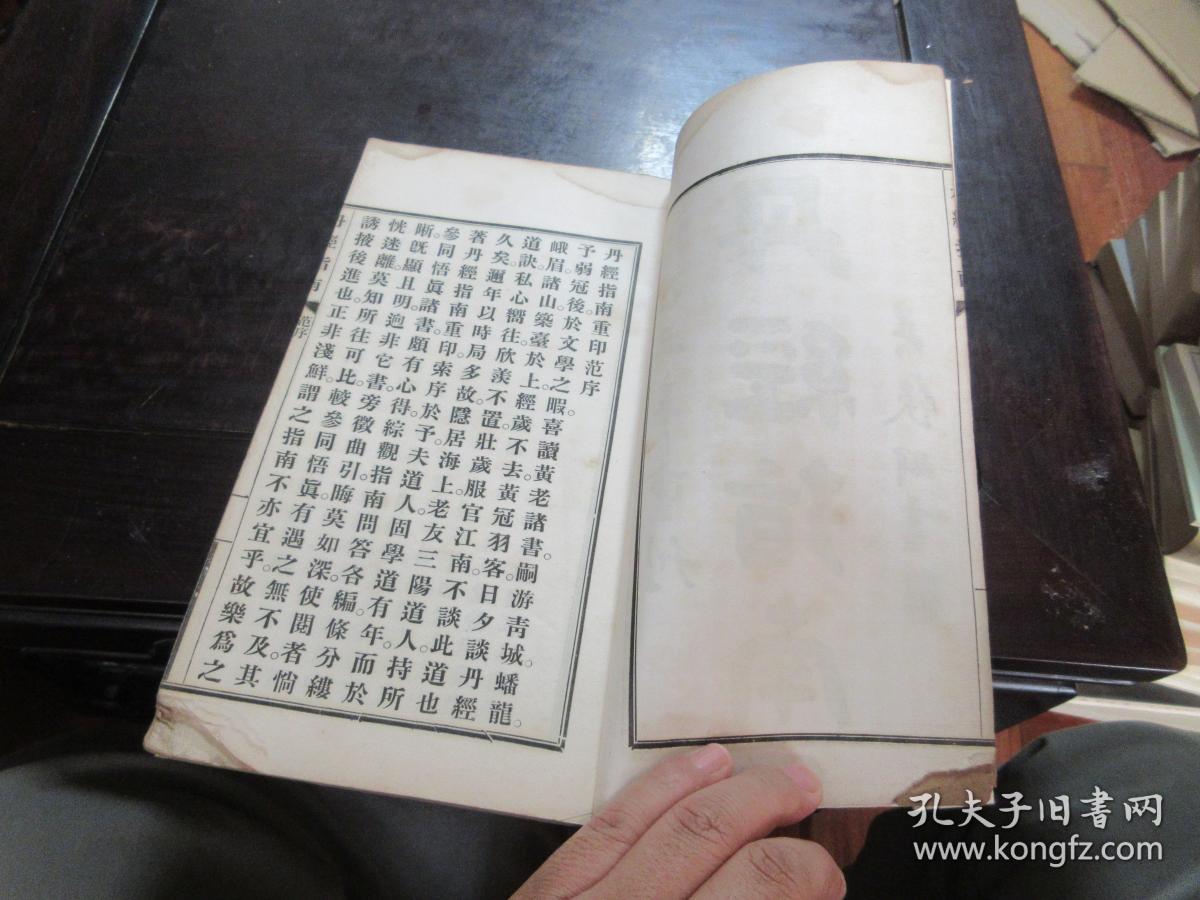 丹經指南重印范序
予弱冠後於文學之暇。喜讀黃老諸書。嗣游靑城。蟠龍。
峨眉。諸山築臺於上。經歲不去。黃冠羽客。日夕談丹經
道訣。私心嚮往。欣羨不置。壯歲服官江南。不談此道也
久矣。邇年以時局多故。隱居海上。老友三陽道人。持所
著丹經指南重印。索序於予。夫道人固學道有年。而於
參同悟眞諸書。頗有心得。綜觀指南問答各編。條分縷
晰。旣顯且明。逈非它書。旁徵曲引。晦莫如深。使閱者惝
恍迷離。莫知所往可比。較參同悟眞。有遇之無不及。其
誘掖後進也。正非淺鮮。謂之指南。不亦宜乎。故樂爲之
丹經指南 范序 一
孔夫子旧书网
www.kongfz.com